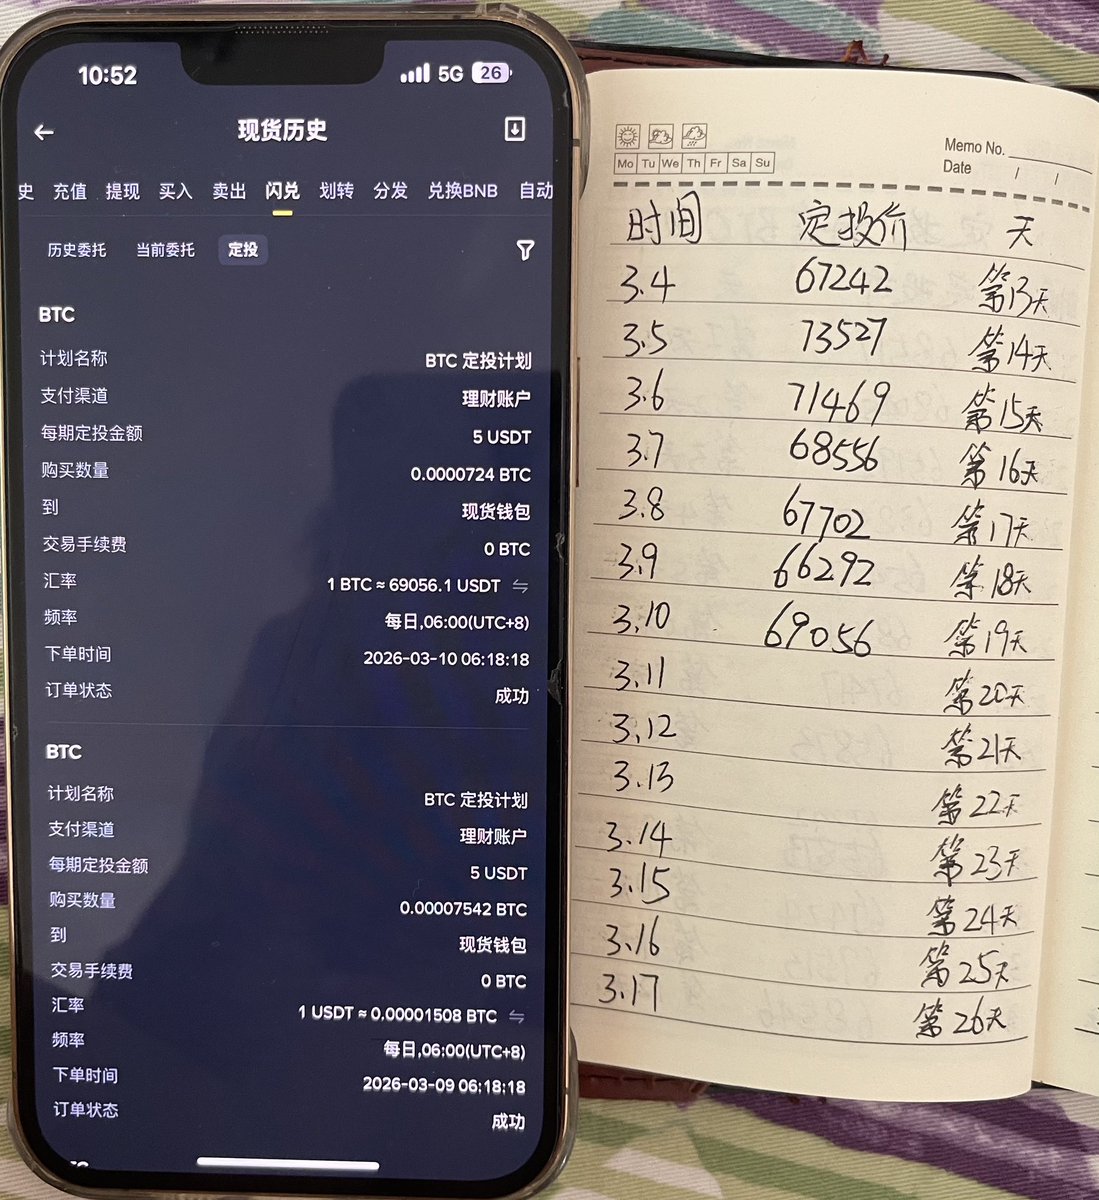 10:52 5G 26
现货历史
史 充值 提现 买入 卖出 闪兑 划转 分发 兑换BNB 自动
历史委托 当前委托 定投
BTC
计划名称 BTC 定投计划
支付渠道 理财账户
每期定投金额 5 USDT
购买数量 0.0000724 BTC
到 现货钱包
交易手续费 0 BTC
汇率 1 BTC ≈ 69056.1 USDT
频率 每日,06:00(UTC+8)
下单时间 2026-03-10 06:18:18
订单状态 成功
BTC
计划名称 BTC 定投计划
支付渠道 理财账户
每期定投金额 5 USDT
购买数量 0.00007542 BTC
到 现货钱包
交易手续费 0 BTC
汇率 1 USDT ≈ 0.00001508 BTC
频率 每日,06:00(UTC+8)
下单时间 2026-03-09 06:18:18
订单状态 成功
Memo No.
Mo Tu We Th Fr Sa Su
Date / /
时间 定投价 天
3.4 67242 第13天
3.5 73527 第14天
3.6 71469 第15天
3.7 68556 第16天
3.8 67702 第17天
3.9 66292 第18天
3.10 69056 第19天
3.11 第20天
3.12 第21天
3.13 第22天
3.14 第23天
3.15 第24天
3.16 第25天
3.17 第26天